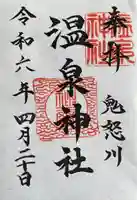 奉拝
鬼怒川
温泉神社
令和六年四月二十日